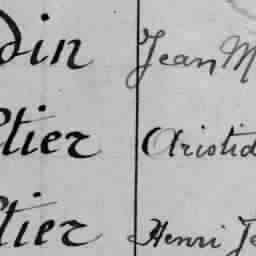 din Jean M
tier Aristid
tier Henri Je